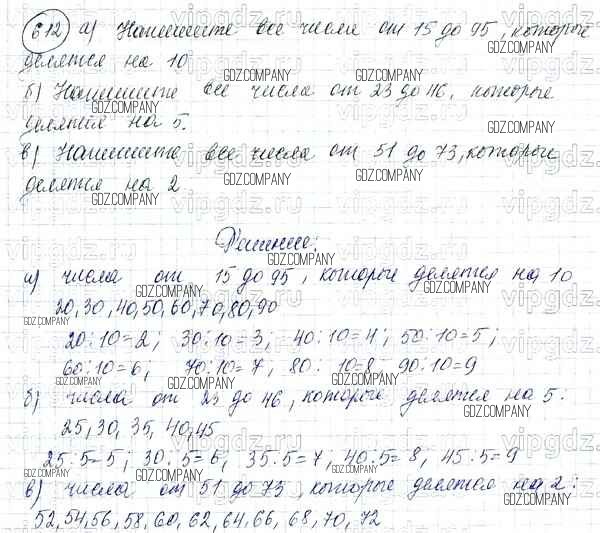 612 а) Напишите все числа от 15 до 95, которые
делятся на 10
б) Напишите все числа от 23 до 46, которые
делятся на 5.
в) Напишите все числа от 51 до 73, которые
делятся на 2
Решение:
а) числа от 15 до 95, которые делятся на 10
20, 30, 40, 50, 60, 70, 80, 90
20:10=2; 30:10=3; 40:10=4; 50:10=5;
60:10=6, 70:10=7, 80:10=8, 90:10=9
б) числа от 23 до 46, которые делятся на 5:
25, 30, 35, 40, 45
25:5=5; 30:5=6; 35:5=7; 40:5=8, 45:5=9
в) числа от 51 до 73, которые делятся на 2:
52, 54, 56, 58, 60, 62, 64, 66, 68, 70, 72